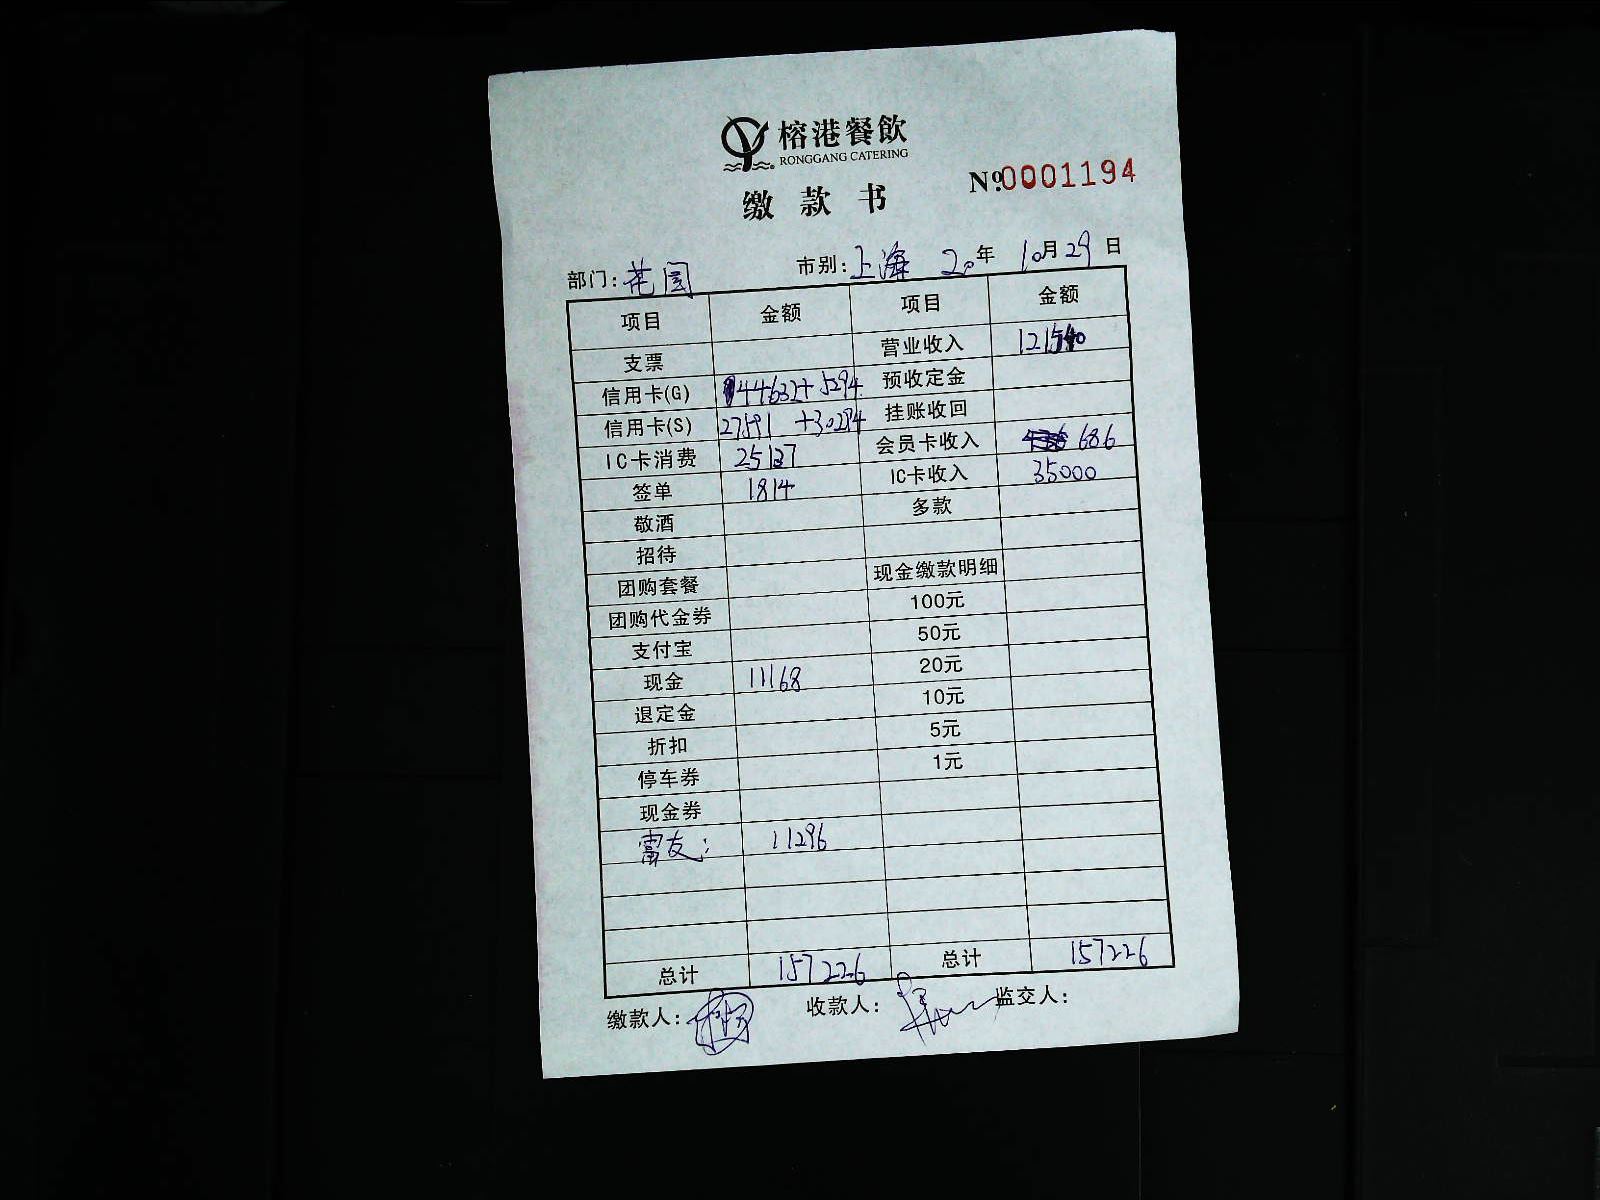 榕港餐飲
RONGGANG CATERING
缴款书 Nº.0001194
部门: 花园 市别: 上海 20年 10月29日
项目 金额 项目 金额
支票 营业收入 121540
信用卡(G) 44632+5294 预收定金
信用卡(S) 27591 +30294 挂账收回
IC卡消费 25137 会员卡收入 686
签单 1814 IC卡收入 35000
敬酒 多款
招待
团购套餐 现金缴款明细
团购代金券 100元
支付宝 50元
现金 11168 20元
退定金 10元
折扣 5元
停车券 1元
现金券
富友: 11296
总计 157226 总计 157226
缴款人: 收款人: 监交人: